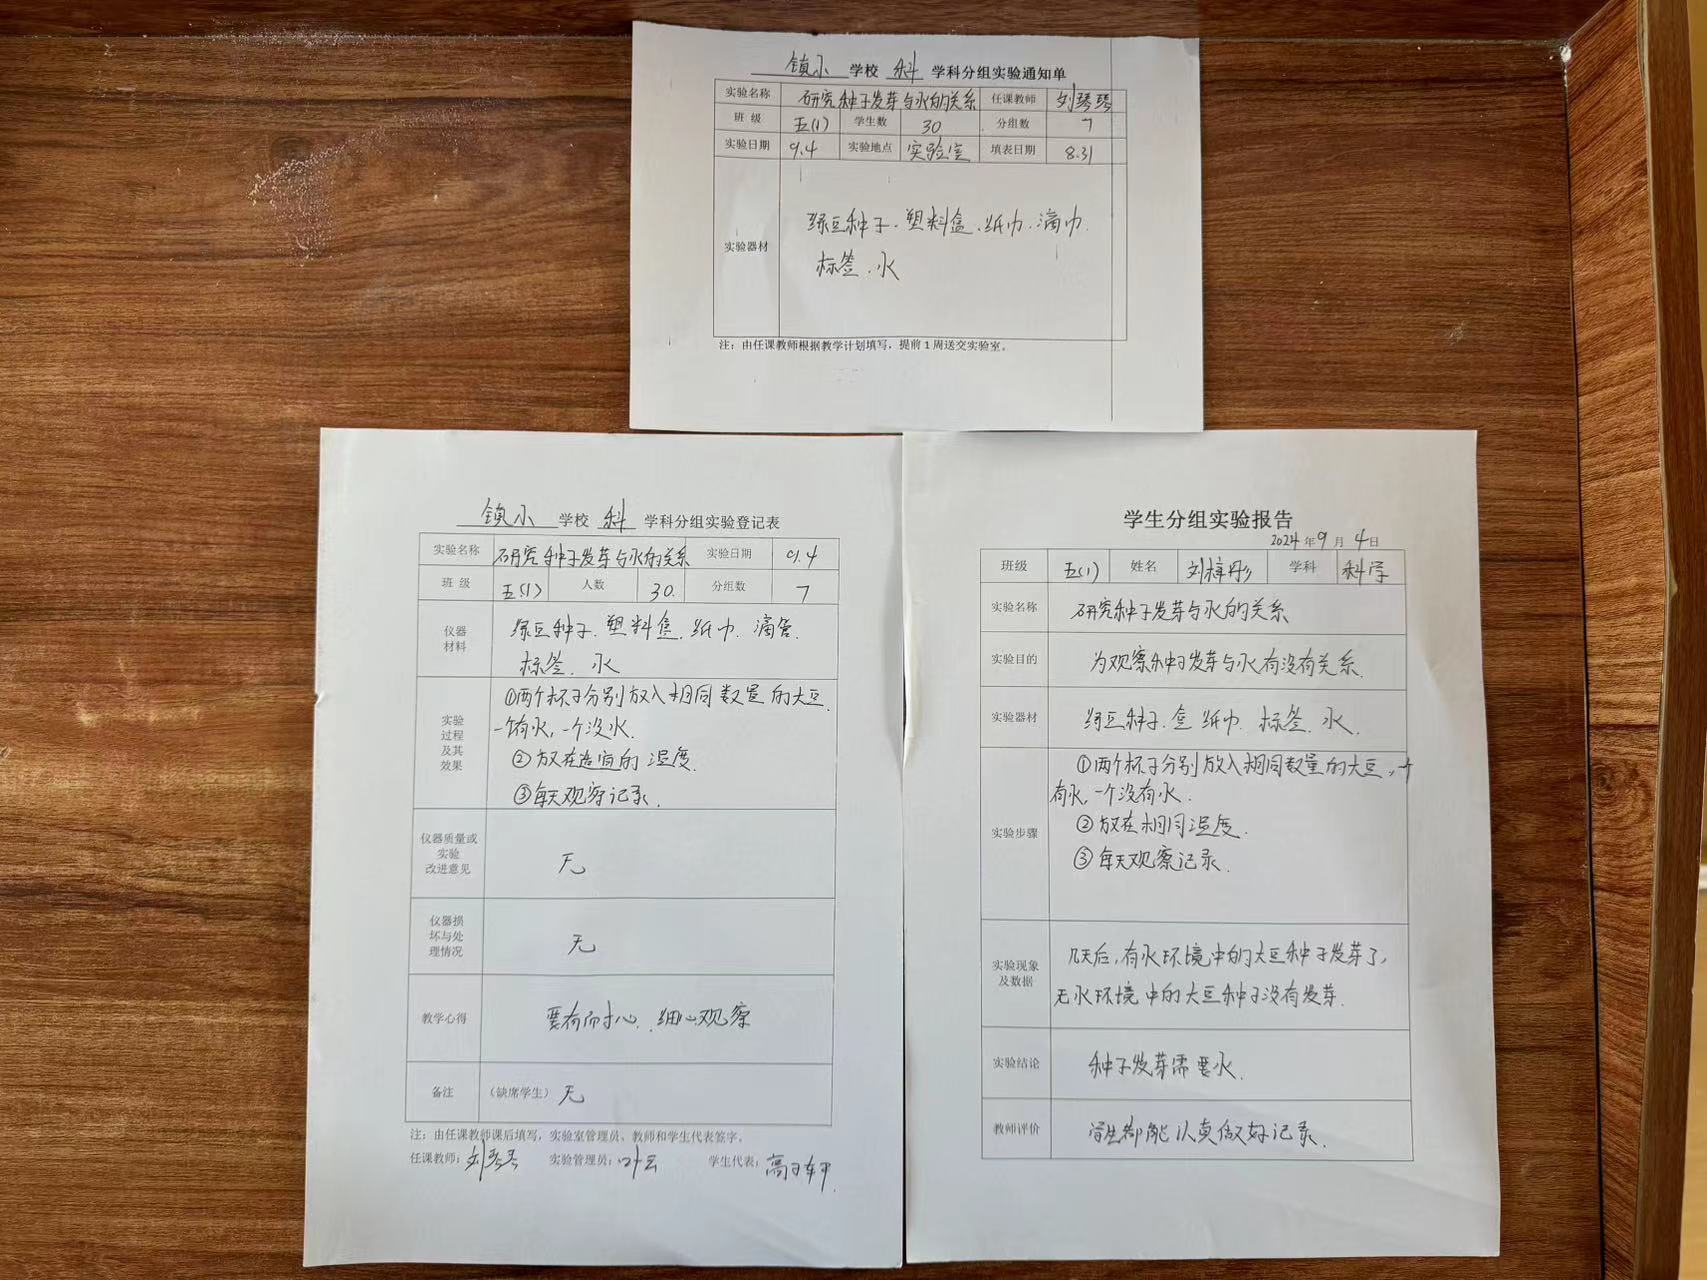 镇小 学校 科 学科分组实验通知单
实验名称 研究种子发芽与水的关系 任课教师 刘琴琴
班 级 五(1) 学生数 30 分组数 7
实验日期 9.4 实验地点 实验室 填表日期 8.31
实验器材 绿豆种子.塑料盒.纸巾.滴巾.
标签.水
注：由任课教师根据教学计划填写，提前1周送交实验室。
镇小 学校 科 学科分组实验登记表
实验名称 研究种子发芽与水的关系 实验日期 9.4
班 级 五(1) 人数 30. 分组数 7
仪器
材料
绿豆种子.塑料盒.纸巾.滴管.
标签.水
实验
过程
及其
效果
①两个杯子分别放入相同数量的大豆.
一个有水,一个没水.
②放在适宜的温度.
③每天观察记录.
仪器质量或
实验
改进意见
无
仪器损
坏与处
理情况
无
教学心得 要有耐心.细心观察
备注 （缺席学生）无
注：由任课教师课后填写，实验室管理员、教师和学生代表签字。
任课教师：刘琴琴 实验管理员：叶云 学生代表：高子轩.
学生分组实验报告
2024年9月4日
班级 五(1) 姓名 刘梓彤 学科 科学
实验名称 研究种子发芽与水的关系
实验目的 为观察种子发芽与水有没有关系.
实验器材 绿豆种子.盒 纸巾.标签.水.
实验步骤 ①两个杯子分别放入相同数量的大豆,一个
有水,一个没有水.
②放在相同温度.
③每天观察记录.
实验现象
及数据
几天后,有水环境中的大豆种子发芽了,
无水环境中的大豆种子没有发芽.
实验结论 种子发芽需要水.
教师评价 学生都能认真做好记录.